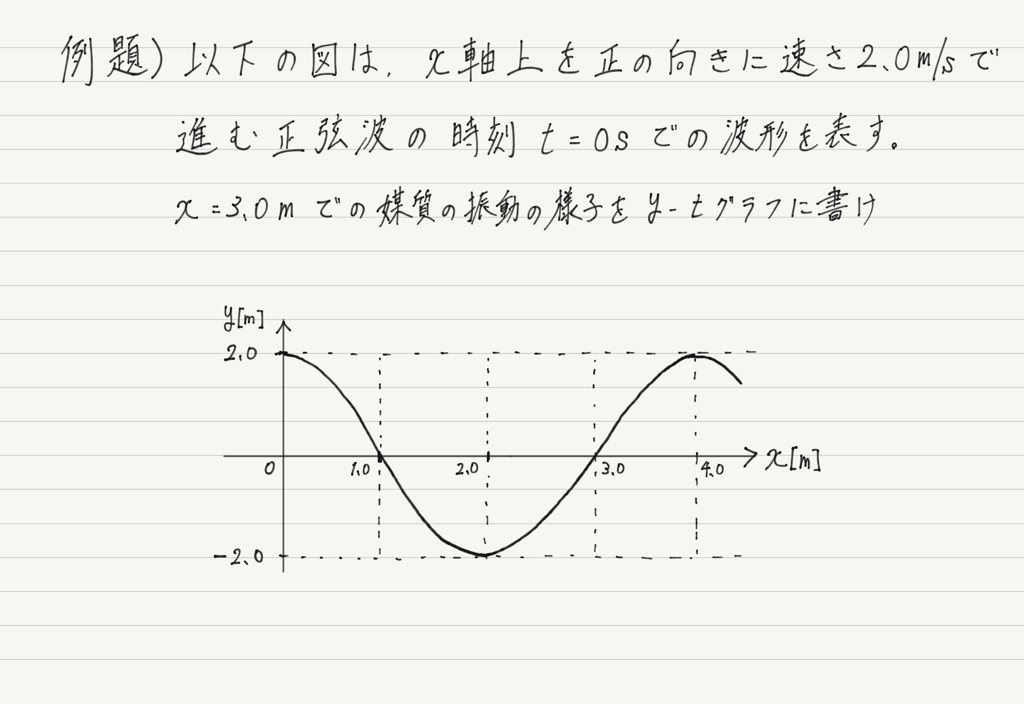 例題)以下の図は、x軸上を正の向きに速さ2.0m/sで
進む正弦波の時刻 t=0s での波形を表す。
x=3.0m での媒質の振動の様子を y-tグラフに書け
y[m]
2.0
0 1.0 2.0 3.0 4.0 x[m]
-2.0